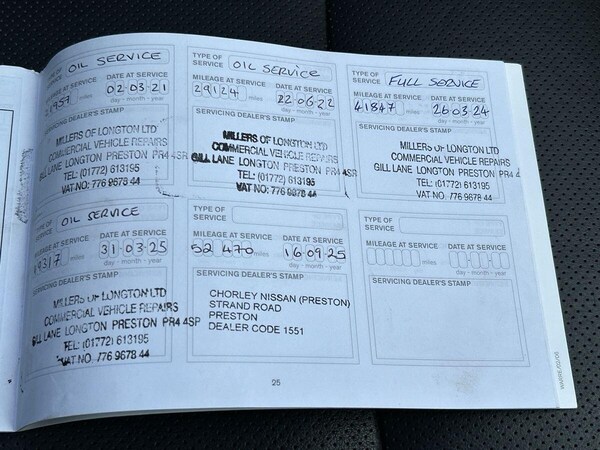 TYPE OF
SERVICE OIL SERVICE
MILEAGE AT SERVICE DATE AT SERVICE
21957 miles 02·03·21
day - month - year
SERVICING DEALER'S STAMP
MILLERS OF LONGTON LTD
COMMERCIAL VEHICLE REPAIRS
GILL LANE LONGTON PRESTON PR4 4SR
TEL: (01772) 613195
VAT NO: 776 9678 44
TYPE OF
SERVICE OIL SERVICE
MILEAGE AT SERVICE DATE AT SERVICE
29124 miles 22·06·22
day - month - year
SERVICING DEALER'S STAMP
MILLERS OF LONGTON LTD
COMMERCIAL VEHICLE REPAIRS
GILL LANE LONGTON PRESTON PR4 4SR
TEL: (01772) 613195
VAT NO: 776 9678 44
TYPE OF
SERVICE FULL SERVICE
MILEAGE AT SERVICE DATE AT SERVICE
41847 miles 26·03·24
day - month - year
SERVICING DEALER'S STAMP
MILLERS OF LONGTON LTD
COMMERCIAL VEHICLE REPAIRS
GILL LANE LONGTON PRESTON PR4 4
TEL: (01772) 613195
VAT NO: 776 9678 44
TYPE OF
SERVICE OIL SERVICE
MILEAGE AT SERVICE DATE AT SERVICE
miles 31·03·25
day - month - year
SERVICING DEALER'S STAMP
MILLERS OF LONGTON LTD
COMMERCIAL VEHICLE REPAIRS
GILL LANE LONGTON PRESTON PR4 4SP
TEL: (01772) 613195
VAT NO: 776 9678 44
TYPE OF
SERVICE
MILEAGE AT SERVICE DATE AT SERVICE
52 470 miles 16·09·25
day - month - year
SERVICING DEALER'S STAMP
CHORLEY NISSAN (PRESTON)
STRAND ROAD
PRESTON
DEALER CODE 1551
TYPE OF
SERVICE
MILEAGE AT SERVICE DATE AT SERVICE
miles
day - month - year
SERVICING DEALER'S STAMP
25